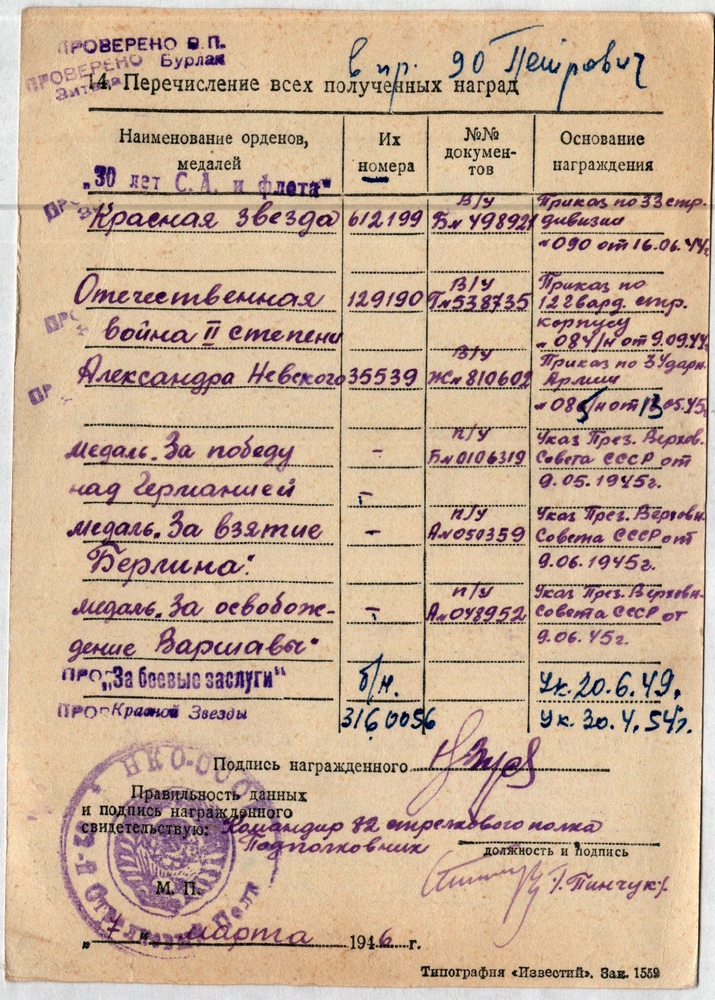 ПРОВЕРЕНО В.П.
ПРОВЕРЕНО Бурлак
в пр. 90 Петрович
14. Перечисление всех полученных наград
Наименование орденов, медалей
Их номера
№№ документов
Основание награждения
„30 лет С.А. и флота"
Красная звезда 612199 В/У Б№498921 Приказ по 33 стр. дивизии
№090 от 16.06.44г.
Отечественная 129190 В/У Г№538735 Приказ по 122 гвард. стр.
война II степени корпусу
№084/н от 9.09.44
Александра Невского 35539 В/У Ж№810602 Приказ по 3 Ударн. Армии
№085/н от 13.05.45г.
медаль. За победу - п/у Б№0106319 Указ През. Верхов. Совета СССР от
над Германией - 9.05.1945г.
медаль. За взятие - п/у А№050359 Указ През. Верховн. Совета СССР от
Берлина." 9.06.1945г.
медаль. За освобож- - п/у А№048952 Указ През. Верховн. Совета СССР от
дение Варшавы" 9.06.45г.
ПРО „За боевые заслуги" б/н. Ук. 20.6.49.
ПРО Красной Звезды 3160056 Ук. 30.4.54г.
Подпись награжденного
Правильность данных
и подпись награжденного
свидетельствую: Командир 82 стрелкового полка
Подполковник
должность и подпись
/Пинчук/.
М. П.
НКО-ССС
Стрелковый Полк
„7" марта 1946 г.
Типография «Известий». Зак. 1559